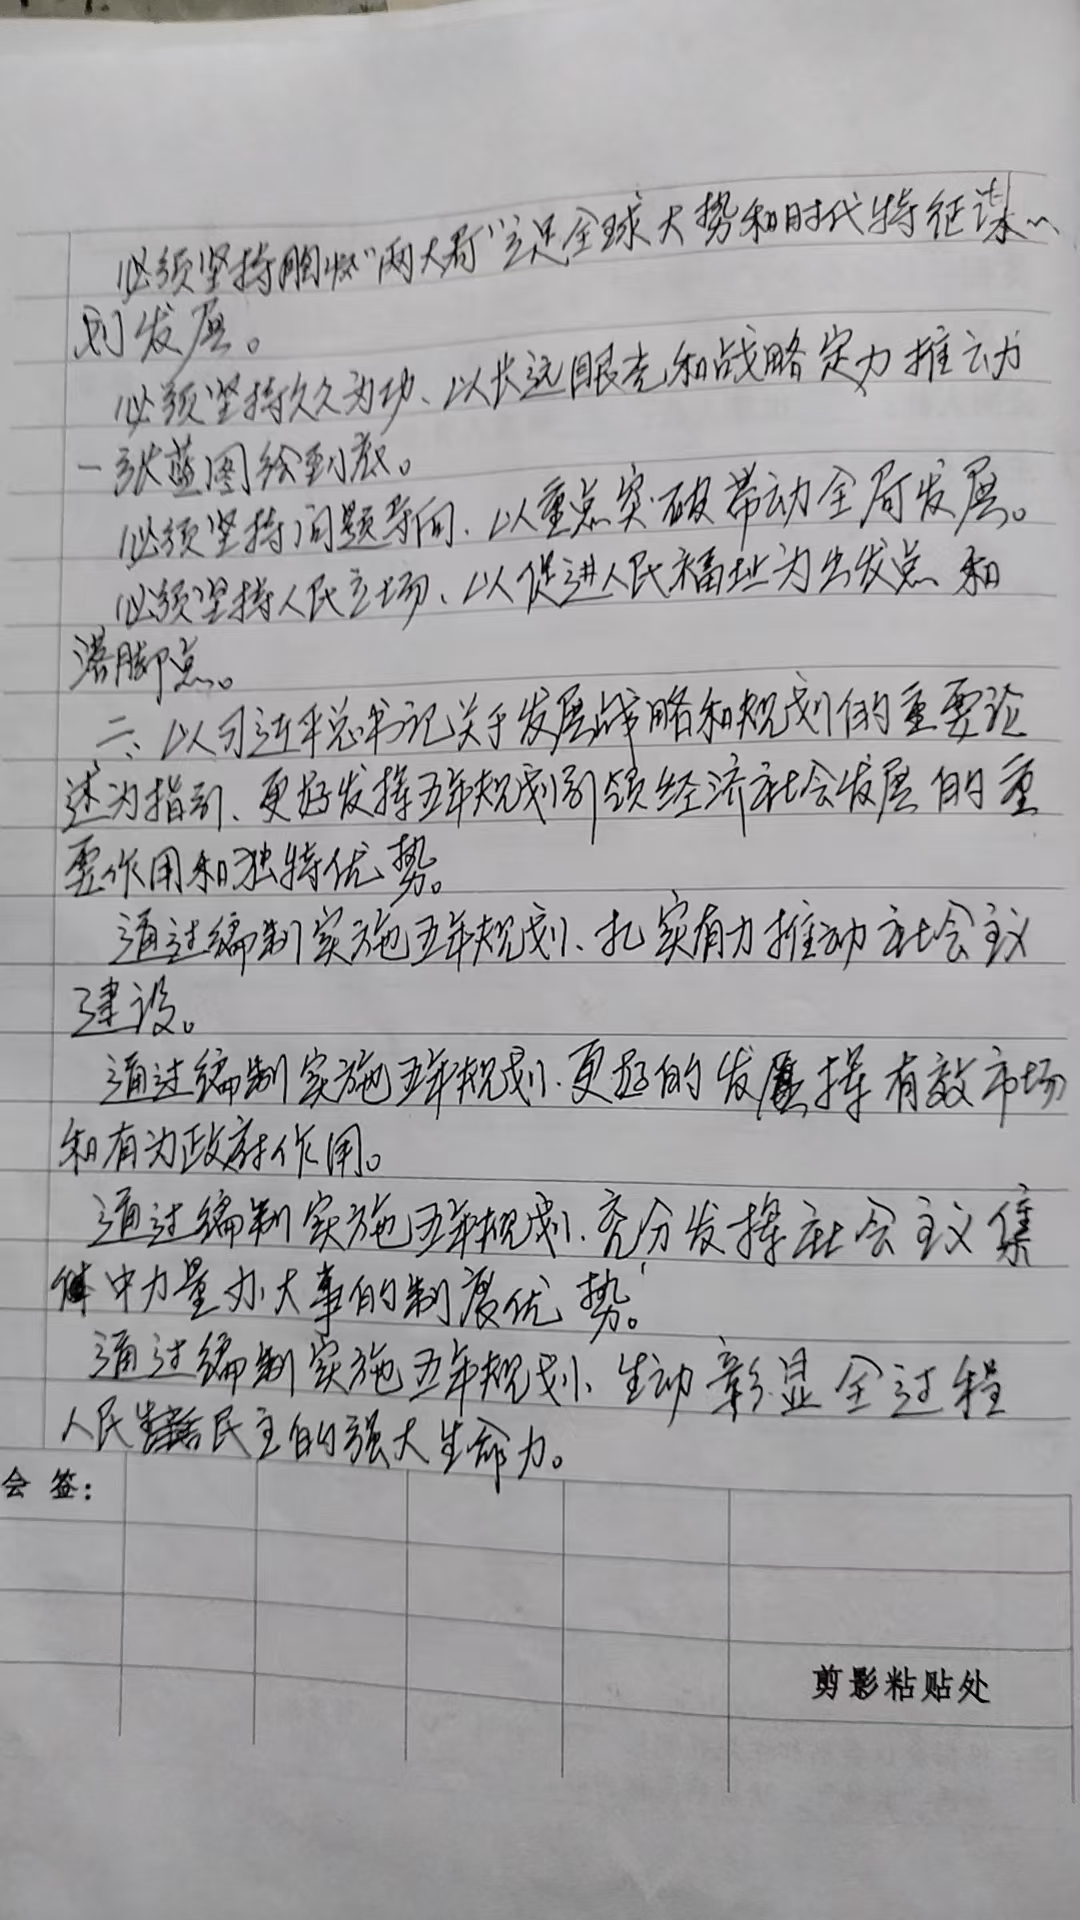 必须坚持胸怀“两大局”立足全球大势和时代特征谋
划发展。
必须坚持久久为功、以长远眼光和战略定力推动
一张蓝图绘到底。
必须坚持问题导向、以重点突破带动全局发展。
必须坚持人民立场、以促进人民福址为出发点和
落脚点。
二、以习近平总书记关于发展战略和规划的重要论
述为指引、更好发挥五年规划引领经济社会发展的重
要作用和独特优势。
通过编制实施五年规划、扎实有力推动社会主义
建设。
通过编制实施五年规划、更好的发挥有效市场
和有为政府作用。
通过编制实施五年规划、充分发挥社会主义集
中力量办大事的制度优势。
通过编制实施五年规划、生动彰显全过程
人民民主的强大生命力。
会签:
剪影粘贴处